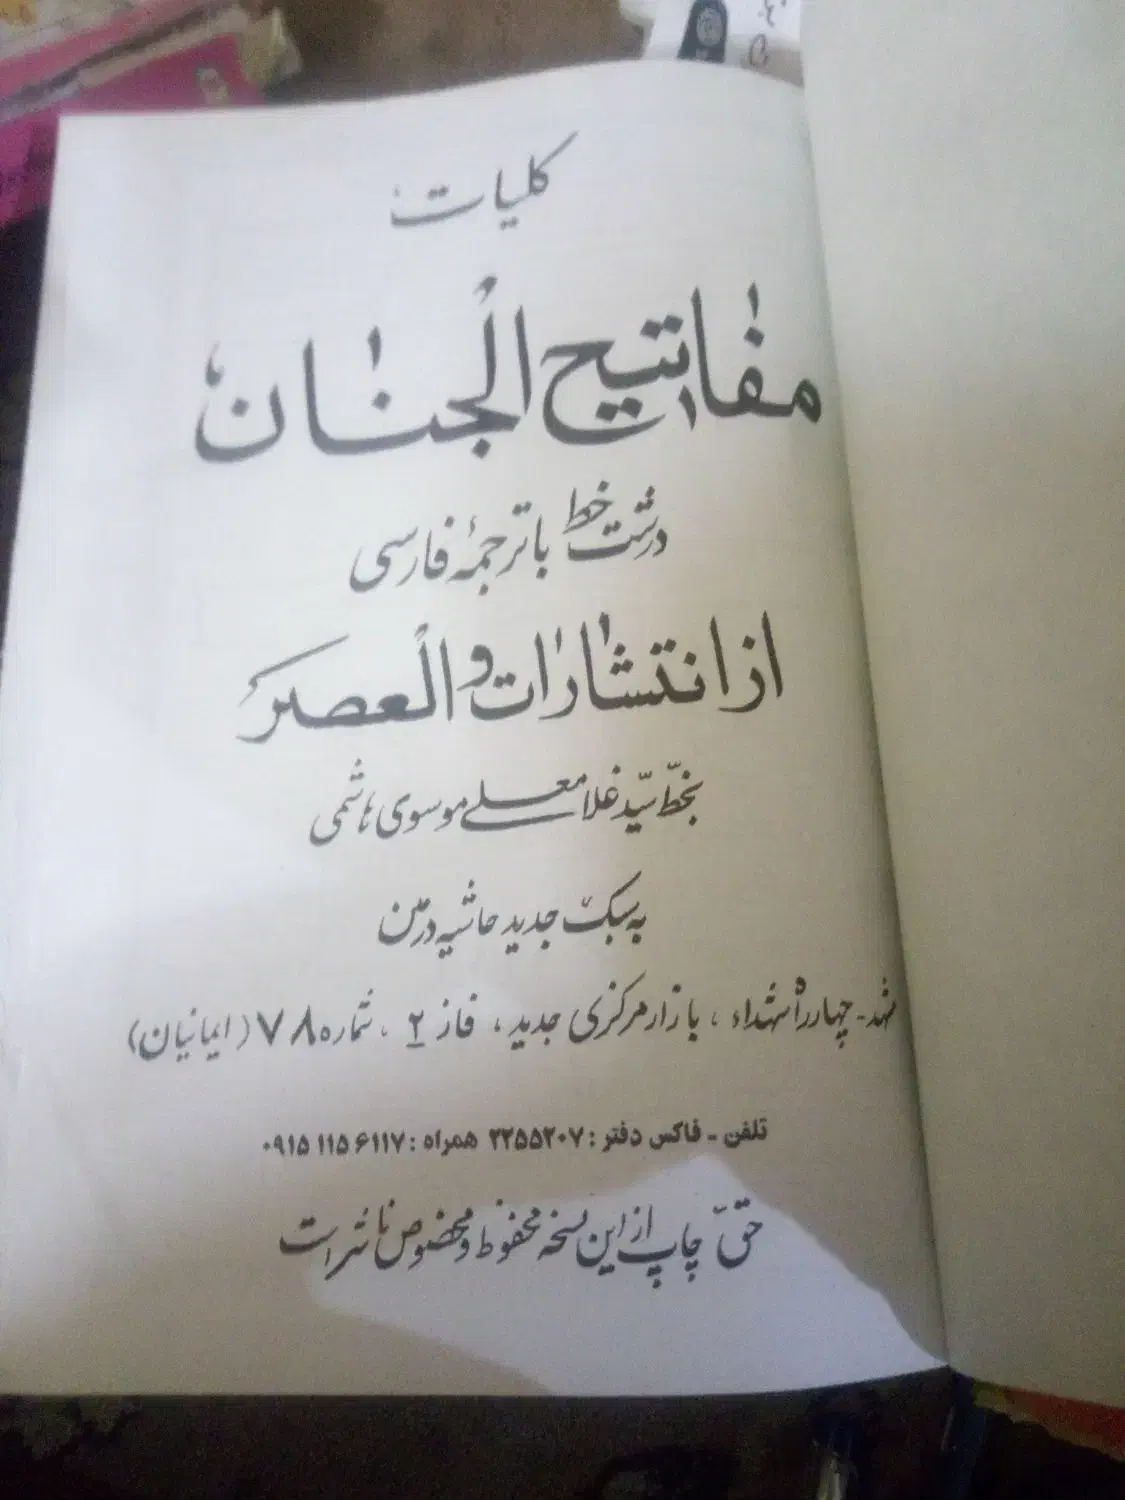 کلیات
مفاتیح الجنان
درشت خط با ترجمهٔ فارسی
از انتشارات والعصر
بخطّ سیّد غلامعلی موسوی هاشمی
به سبک جدید حاشیه در متن
مشهد - چهارراه شهداء ، بازار مرکزی جدید ، فاز ۲ ، شماره ۷۸ (ایمانیان)
تلفن - فاکس دفتر : ۲۲۵۵۲۰۷ همراه : ۰۹۱۵۱۱۵۶۱۱۷
حقّ چاپ از این نسخه محفوظ و مخصوص ناشر است